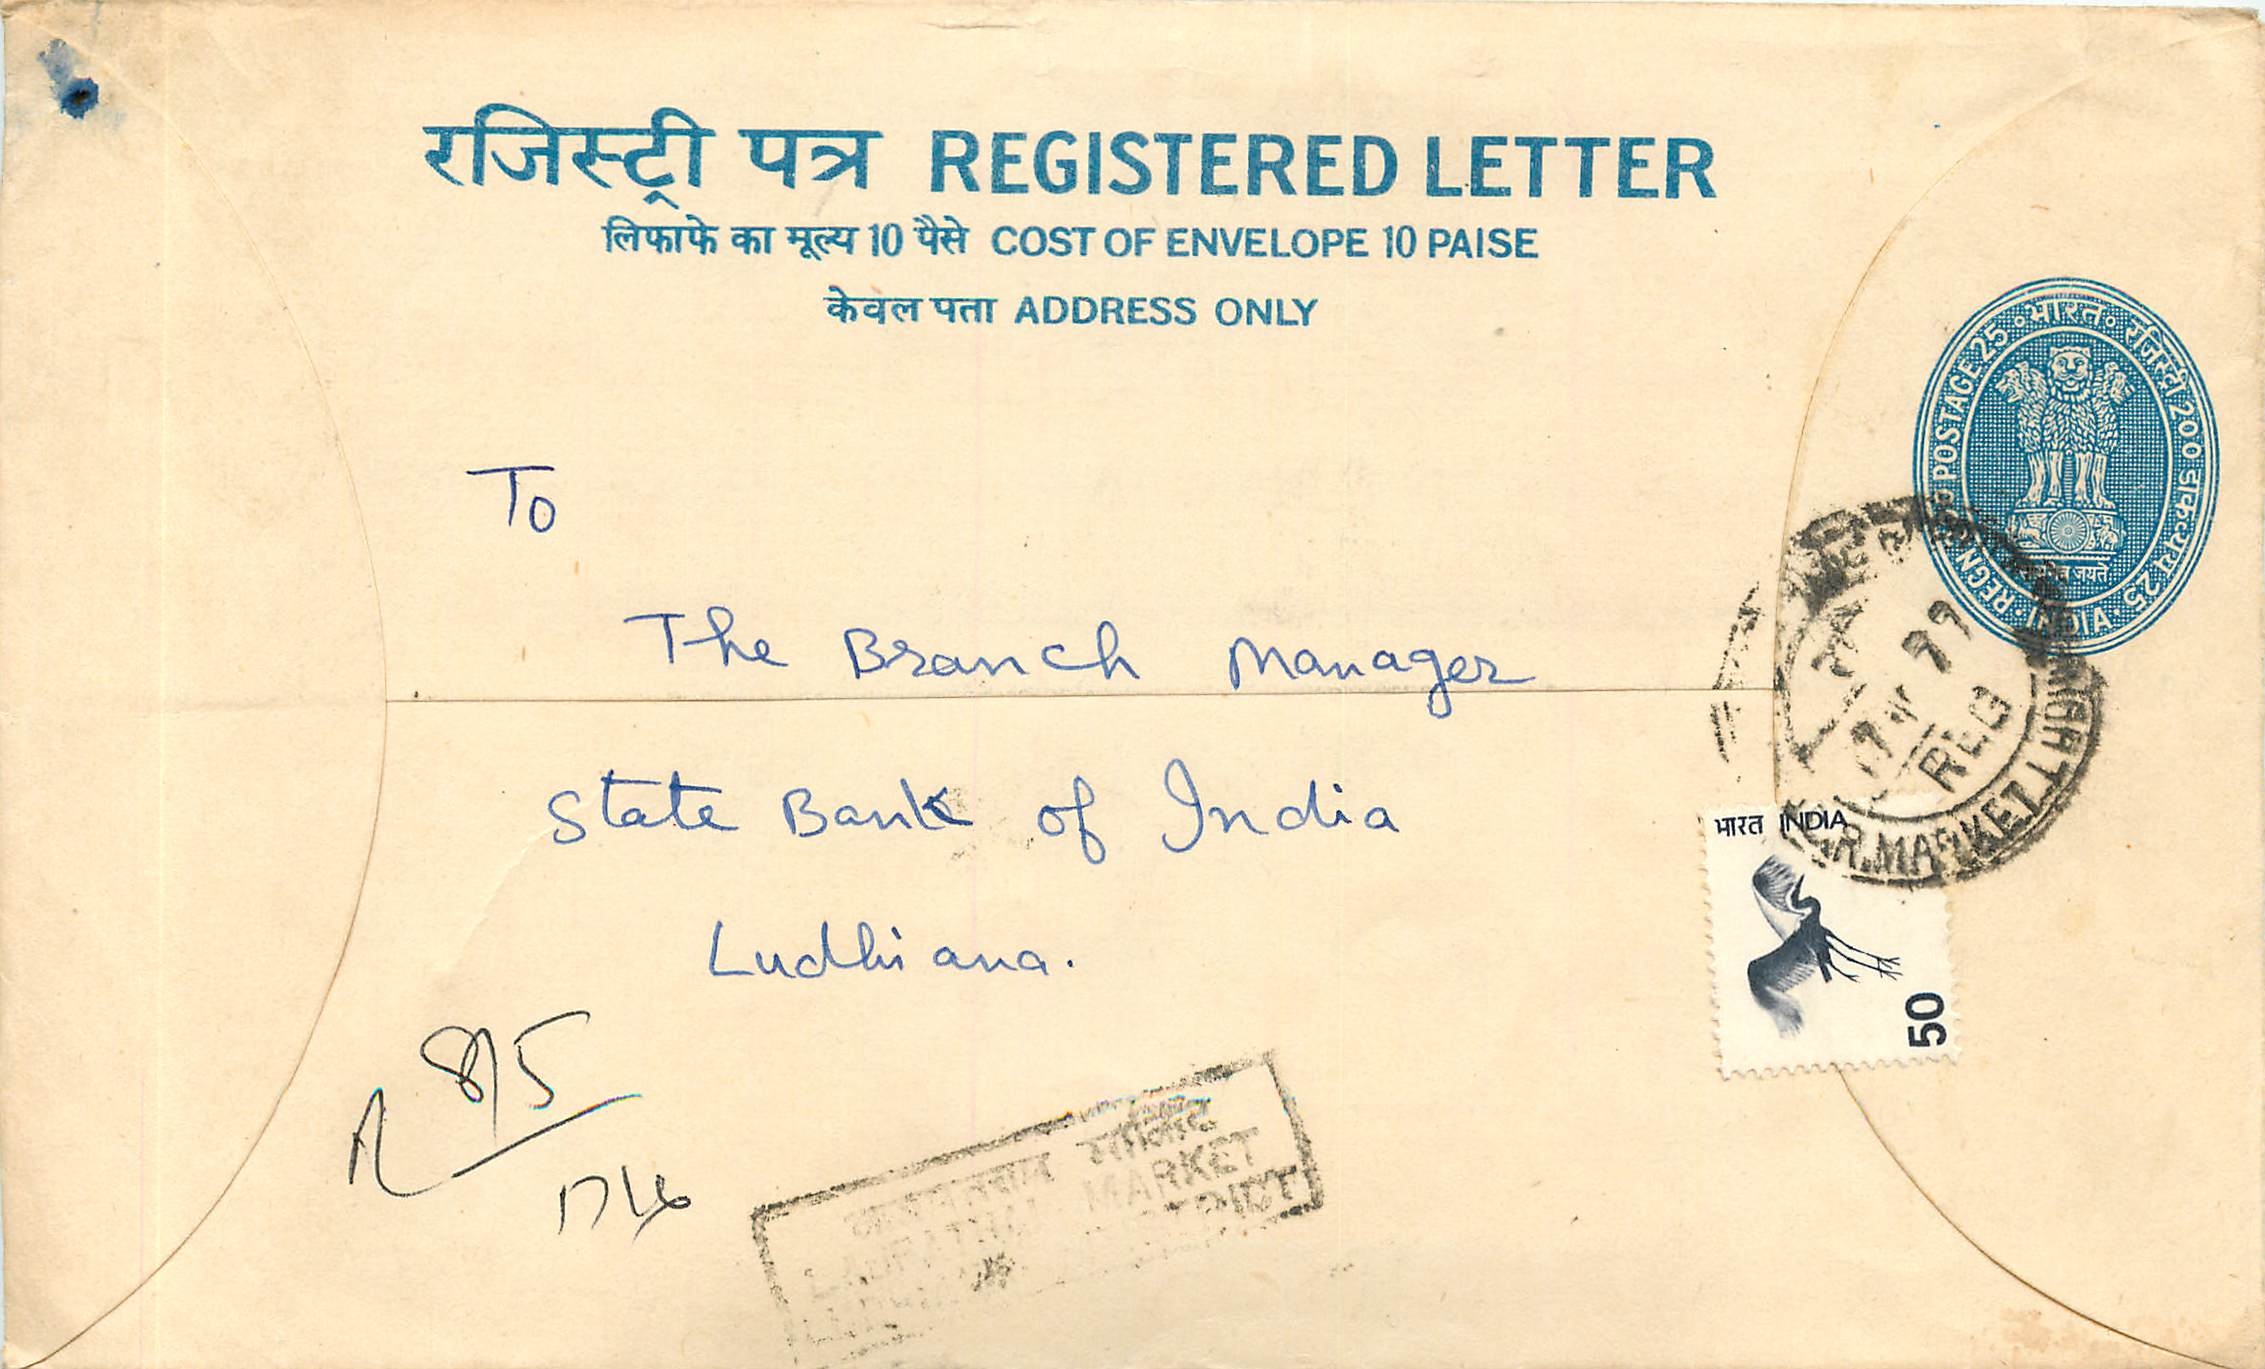 रजिस्ट्री पत्र REGISTERED LETTER
लिफाफे का मूल्य 10 पैसे COST OF ENVELOPE 10 PAISE
केवल पता ADDRESS ONLY
REGN POSTAGE 25 भारत रजिस्ट्री 200 डाकटयय 25 INDIA
जयते
To
The Branch Manager
State Bank of India
Ludhiana.
RLG
R. MARKET
भारत INDIA
50
R 815
MARKET